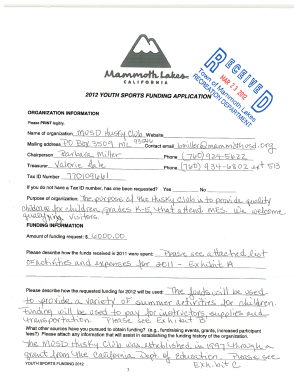 Mammoth Lakes
CALIFORNIA
RECEIVED
MAR 23 2012
Town of Mammoth Lakes
RECREATION DEPARTMENT
2012 YOUTH SPORTS FUNDING APPLICATION
ORGANIZATION INFORMATION
Please PRINT legibly.
Name of organization MUSD Husky Club Website
Mailing address PO Box 3509 ML 93546 Contact email bmiller@mammothusd.org
Chairperson Barbara Miller Phone (760) 934-5622
Treasurer Valerie Sale Phone (760) 934-6802 ext 513
Tax ID Number 770109661
If you do not have a Tax ID number, has one been requested? Yes No
Purpose of organization: The purpose of the Husky Club is to provide quality
childcare for children, grades K-5, that attend MES. We welcome
qualifying visitors.
FUNDING INFORMATION
Amount of funding request: $ 6000.00
Please describe how the funds received in 2011 were spent: Please see attached list
of activities and expenses for 2011 - Exhibit A
Please describe how the requested funding for 2012 will be used: The funds will be used
to provide a variety of summer activities for children.
Funding will be used to pay for instructors, supplies and
transportation. Please see Exhibit B
What other sources have you pursued to obtain funding? (e.g., fundraising events, grants, increased participant
fees?) Please attach any information that will assist in establishing the funding history of the organization.
The MUSD Husky Club was established in 1997 through a
grant from the California Dept of Education. Please see
Exhibit C
YOUTH SPORTS FUNDING 2012